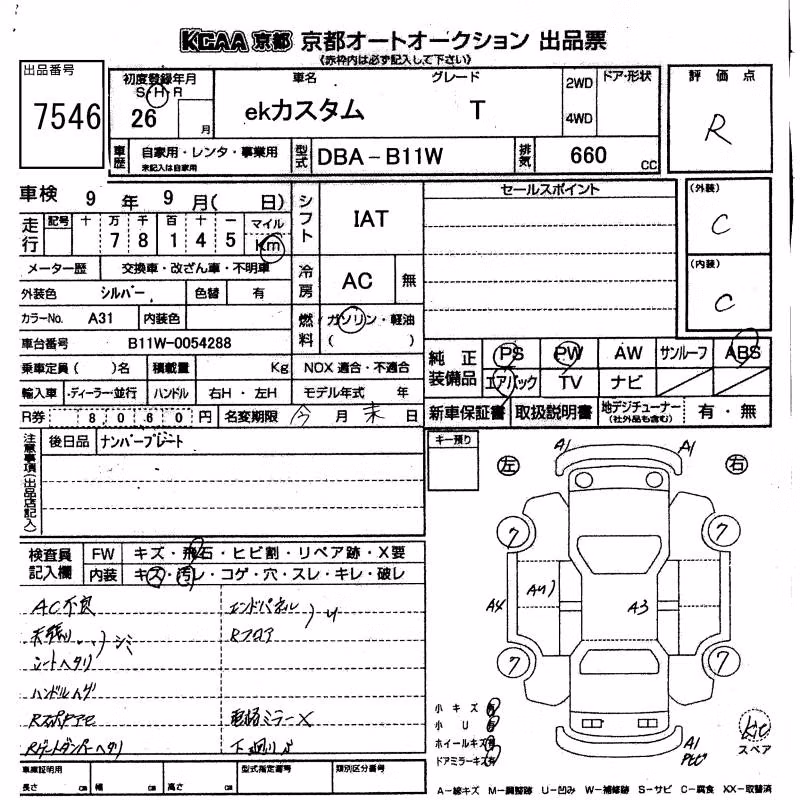 KCAA 京都 京都オートオークション 出品票
《赤枠内は必ず記入して下さい》
出品番号
7546
初度登録年月
S・H・R
26 月
車名 グレード
ekカスタム T
2WD
4WD
ドア・形状
評価点
R
車歴 自家用・レンタ・事業用
未記入は自家用
型式 DBA－B11W
排気 660 cc
車検 9 年 9 月( 日)
走行 記号 十 万 千 百 十 一 マイル
7 8 1 4 5 Km
シフト IAT
セールスポイント
(外装)
C
(内装)
C
メーター歴 交換車・改ざん車・不明車
冷房 AC 無
外装色 シルバー 色替 有
カラーNo. A31 内装色
燃料 ガソリン・軽油
( )
車台番号 B11W-0054288
乗車定員( )名 積載量 Kg NOX 適合・不適合
純正装備品 PS PW AW サンルーフ ABS
エアバック TV ナビ
輸入車 ・ディーラー・並行 ハンドル 右H・左H モデル年式 年
R券 8060円 名変期限 今 月 末 日
新車保証書 取扱説明書 地デジチューナー
(社外品も含む) 有・無
注意事項(出品店記入)
後日品 ナンバープレート
キー預り
左 右
A1 A1
7 7
A4 A3
7 7
検査員記入欄
FW キズ・飛石・ヒビ割・リペア跡・X要
内装 キズ・汚レ・コゲ・穴・スレ・キレ・破レ
AC不良 エンドパネル
天張り シミ Rフロア
シートヘタリ
ハンドルハゲ
電格ミラーX
Rゲートダンパーヘタリ 下廻り
小キズ 有
小U 有
ホイールキズ 有
ドアミラーキズ 有
A1
スペア
車検証明用
長さ cm 幅 cm 高さ cm
型式指定番号 類別区分番号
A－線キズ M－調整跡 U－凹み W－補修跡 S－サビ C－腐食 XX－取替済